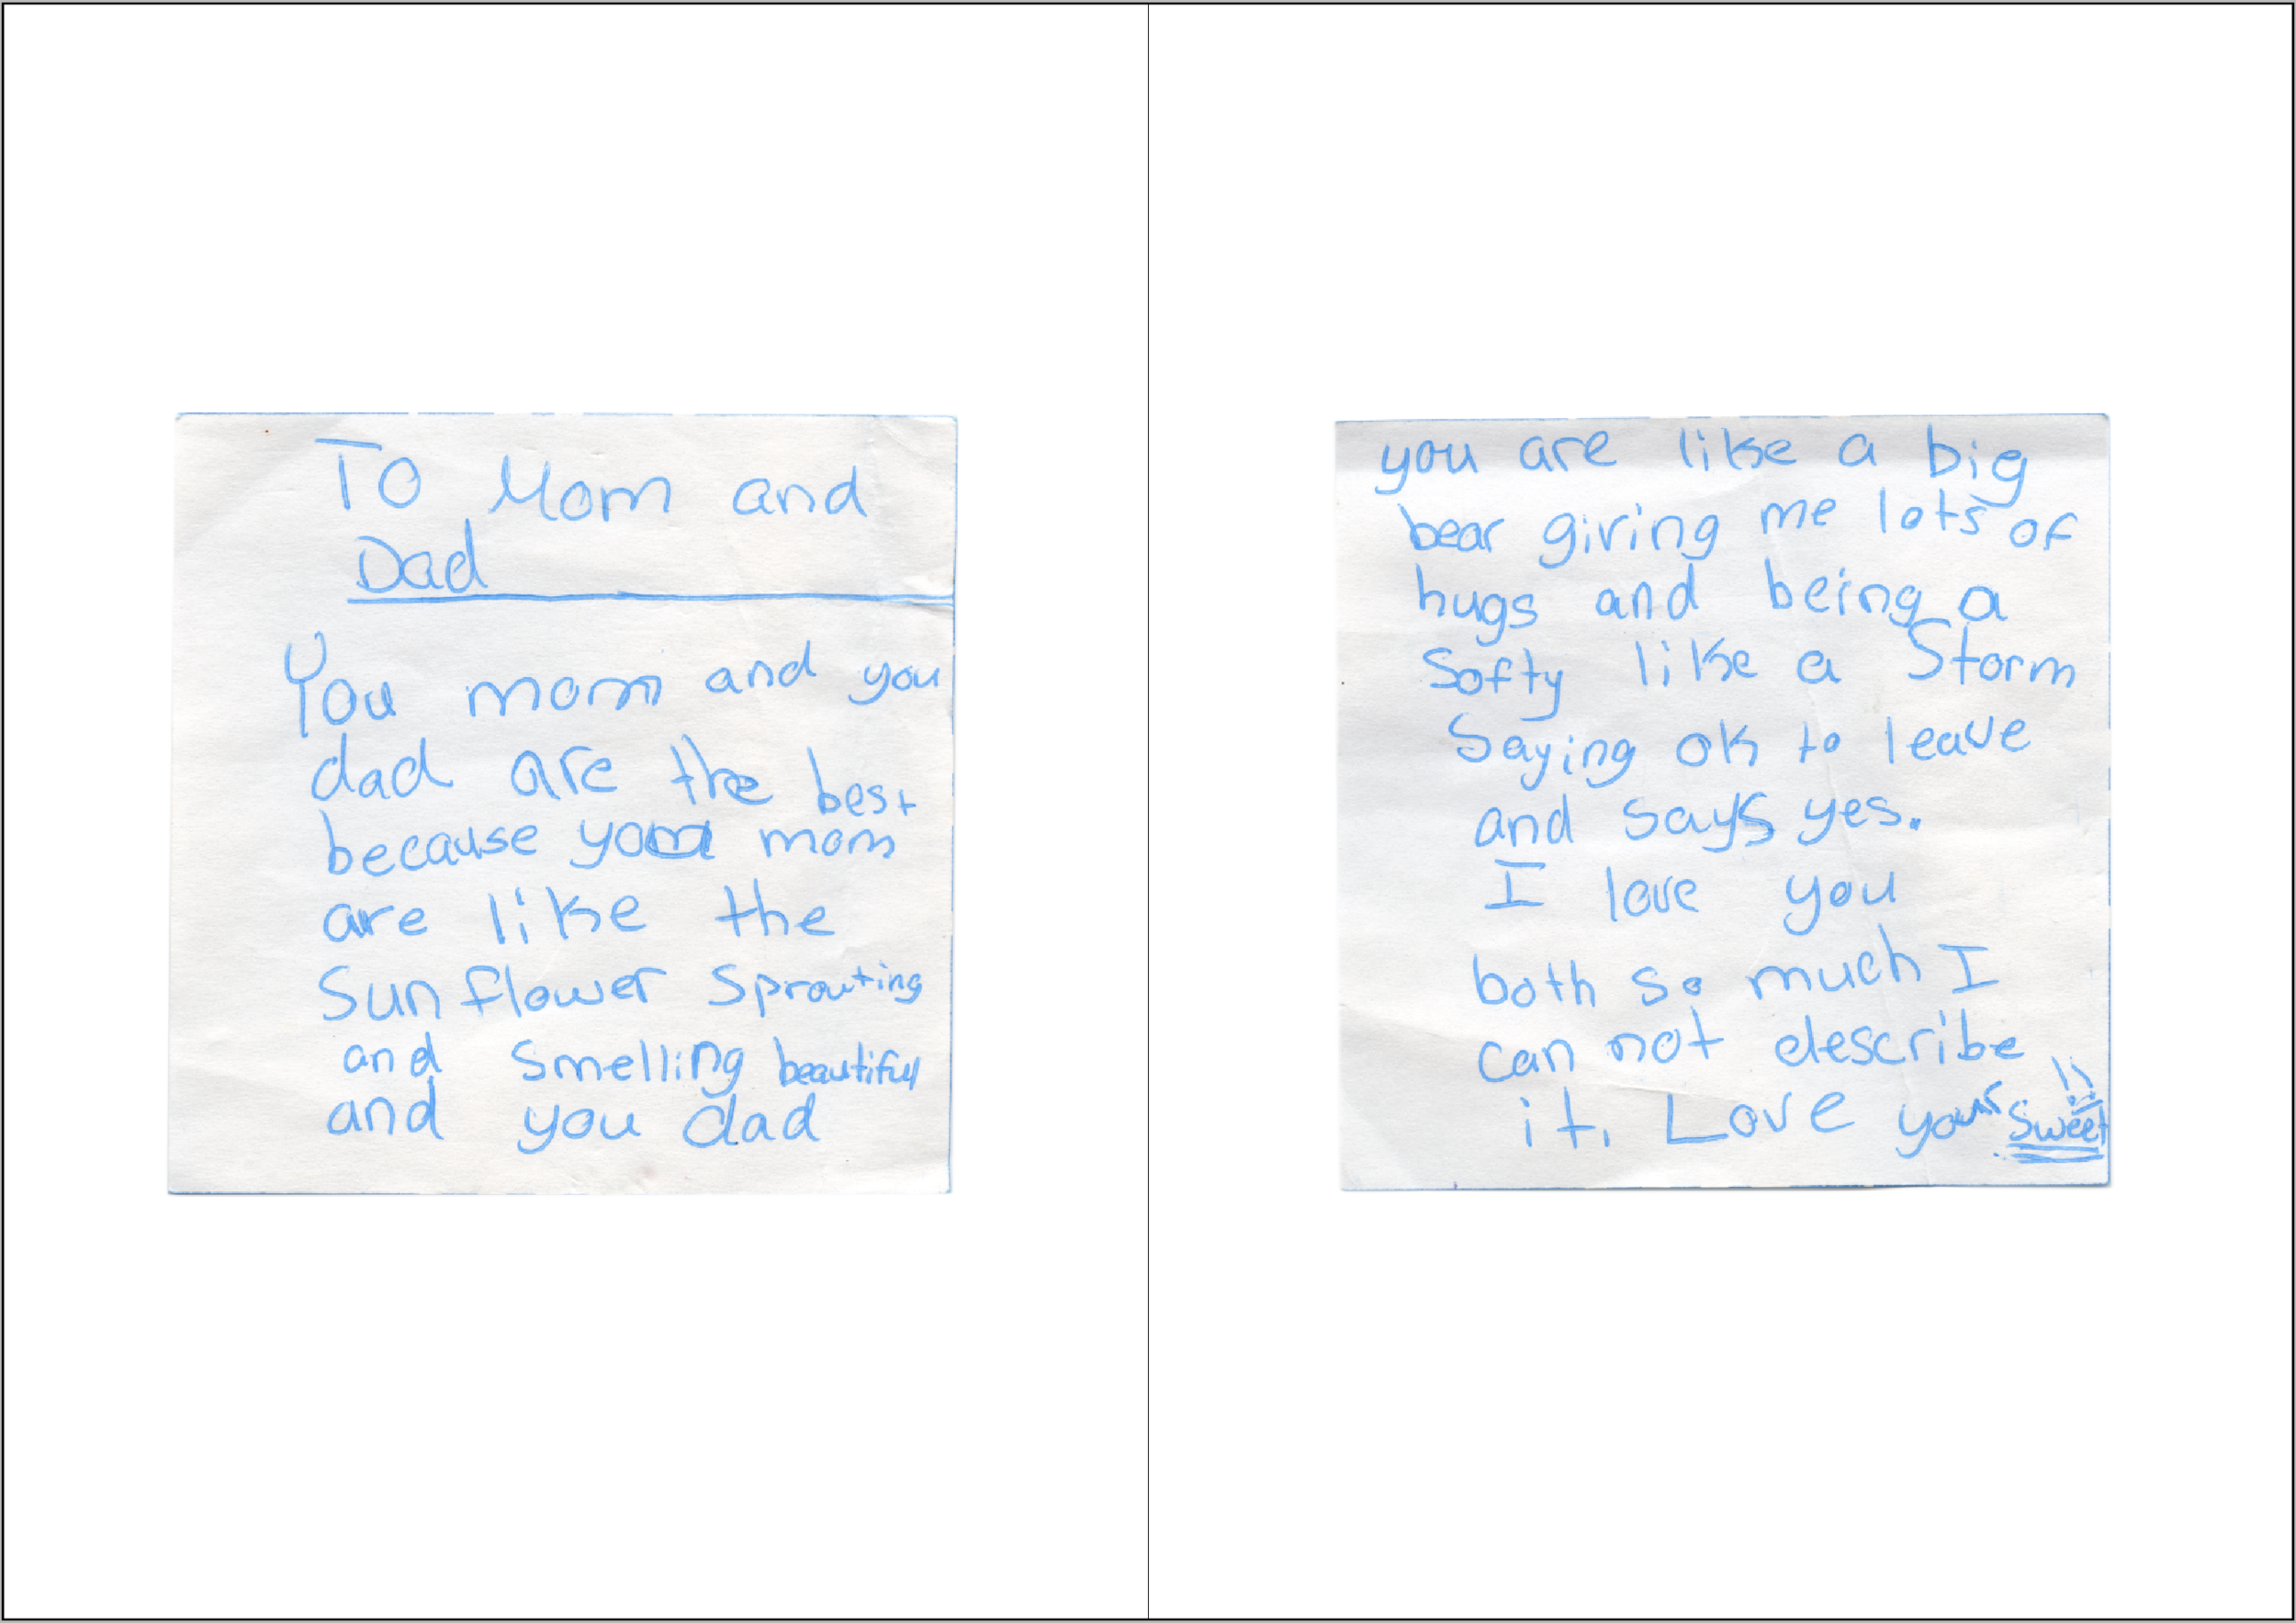 To Mom and
Dad
You mom and you
dad are the best
because you mom
are like the
Sun flower Sprouting
and Smelling beautiful
and you dad
you are like a big
bear giving me lots of
hugs and being a
Softy like a Storm
Saying ok to leave
and says yes.
I love you
both so much I
can not describe
it. Love your Sweet!!